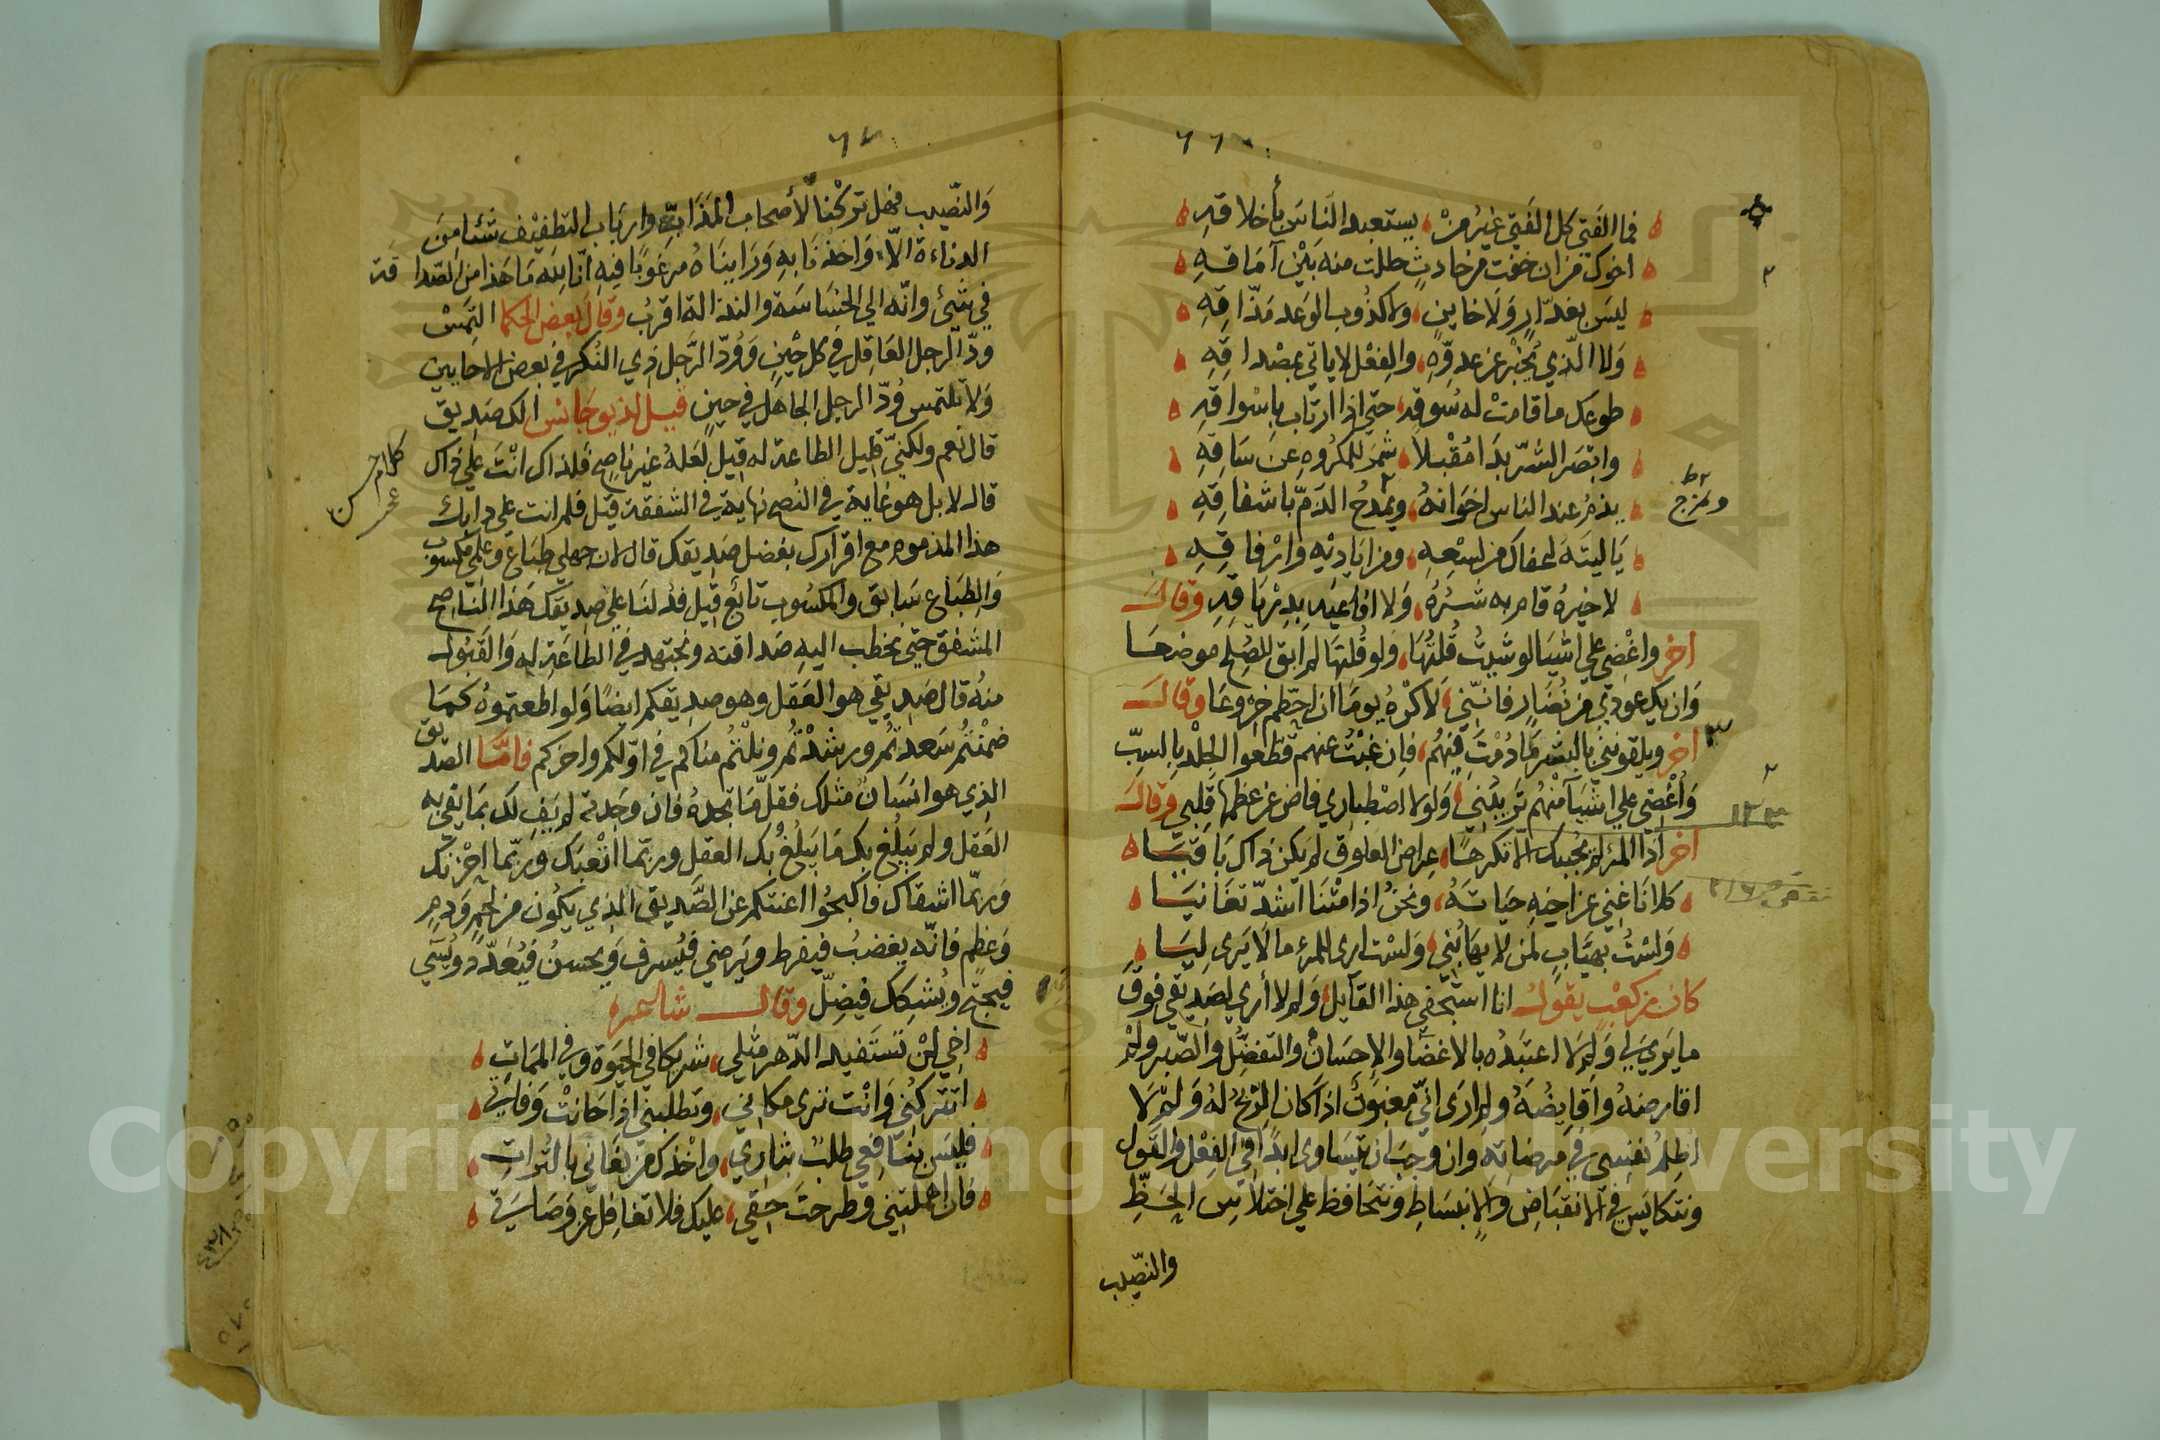 ٦٦
فما الفتي كل الفتي غير من يستعبد الناس بأخلاقه
اخوك من ان خفت من حادث حللت منه بين آماقه
ليس بغدّار ولا خاين ولا كذوب الوعد مذّاقه
ولا الّذي يخبر عن عدوّه والفعل لا ياتي بمصداقه
طوعك ما قامت له سوقه حتي اذا ارتاب باسواقه
وابصر الشّر بدا مقبلا شمر للمكروه عن ساقه
يذم عند الناس اخوانه ويمدح الذمّ باشفاقه
يا ليته اعفاك من لسعه ومن اياديه وارفاقه
لا خيره قام به شره ولا افاعيه بدرياقه وقال
اخر واغضي علي اشيا لو شيت قلتها ولو قلتها لم ابق للصلح موضحا
وان يك عودي من نضار فانّني لاكره يوما ان احطم خروعا وقال
اخر ويلقونني بالبشر ما دمت فيهم فان غبت عنهم قطعوا الجلد بالسبّ
وأغضي علي اشيآ منهم تريبني ولولا اصطباري فاض من عظمها قلبي وقال
اخر اذا المرء لم يحببك الا تكرها عراض العلوق لم يكن ذاك باقيا
كلانا غني عن اخيه حياته ونحن اذا متنا اشدّ تغانيا
ولست بهيّاب لمن لا يهابني ولست اري للمرء ما لا يري ليا
كان بن كعب يقول انا استجفي هذا القآيل ولم لا أري لصديقي فوق
ما يري لي ولم لا اعتبده بالاغضا والاحسان والتفضّل والصّبر ولم
اقارضه واقايضه ولم ارى انّي مغبون اذا كان الربح له ولم لا
اظلم نفسي في مرضاته وان وجب ان نتساوي ابدا في الفعل والقول
ونتكايس في الانقباض والانبساط ونتحافظ علي اختلاس الحظّ
والنصّيب
٦٧
والنصّيب فهل تركنا لأصحاب المذابّ وارباب التطفيف شيئا من
الدناءة الّا واخذنا به ورايناه مرغوبا فيه انّا لله ما هذا من الصّداقة
في شئ وانّه الي الخساسة والنذالة اقرب وقال بعض الحكما التمس
ودّ الرجل العاقل في كل حين وودّ الرّجل ذي النكر في بعض الاحايين
ولا تلتمس ودّ الرجل الجاهل في حين قيل لذيوجانس الك صديق
قال نعم ولكنّي قليل الطاعة له قيل لعله غير ناصح فلذاك انت علي ذاك
قال لا بل هو غاية في النصح نهاية في الشفقة قيل فلم انت علي دابك
هذا المذموم مع اقرارك بفضل صديقك قال لان جهلي طباع وعلمي مكسوب
والطباع سابق والمكسوب تابع قيل فدلنا علي صديقك هذا النّاصح
المشفق حتي نخطب اليه صداقته ونجتهد في الطاعة له والقبول
منه قال صديقي هو العقل وهو صديقكم ايضا ولو اطعتموه كما
ضمنتم سعدتم ورشدتم ونلتم مناكم في اوّلكم واخركم فامّا الصديق
الذي هو انسان مثلك فقلّ ما تجده فان وجدته لم يف لك بما يفي به
العقل ولم يبلغ بك ما يبلغ بك العقل وربّما اتعبك وربّما احزنك
وربّما اشقاك فاكبحوا اعنتكم عن الصّديق الذي يكون من لحم ودم
وعظم فانّه يغضب فيفرط ويرضي فيسرف ويحسن فيعدّد ويسئ
فيحتج ويشكك فيضلّ وقال شاعر
اخي لن تستفيد الدّهر مثلي شريكا في الحيوة وفي الممات
اتتركني وانت تري مكاني وتطلبني اذا حانت وفاتي
فليس بنافعي طلب بثاري واخذك من بغاني بالترات
فان اهملتني وطرحت حقي عليك فلا تغافل عن وصاتي
كلام حسن
Copyright © King Saud University